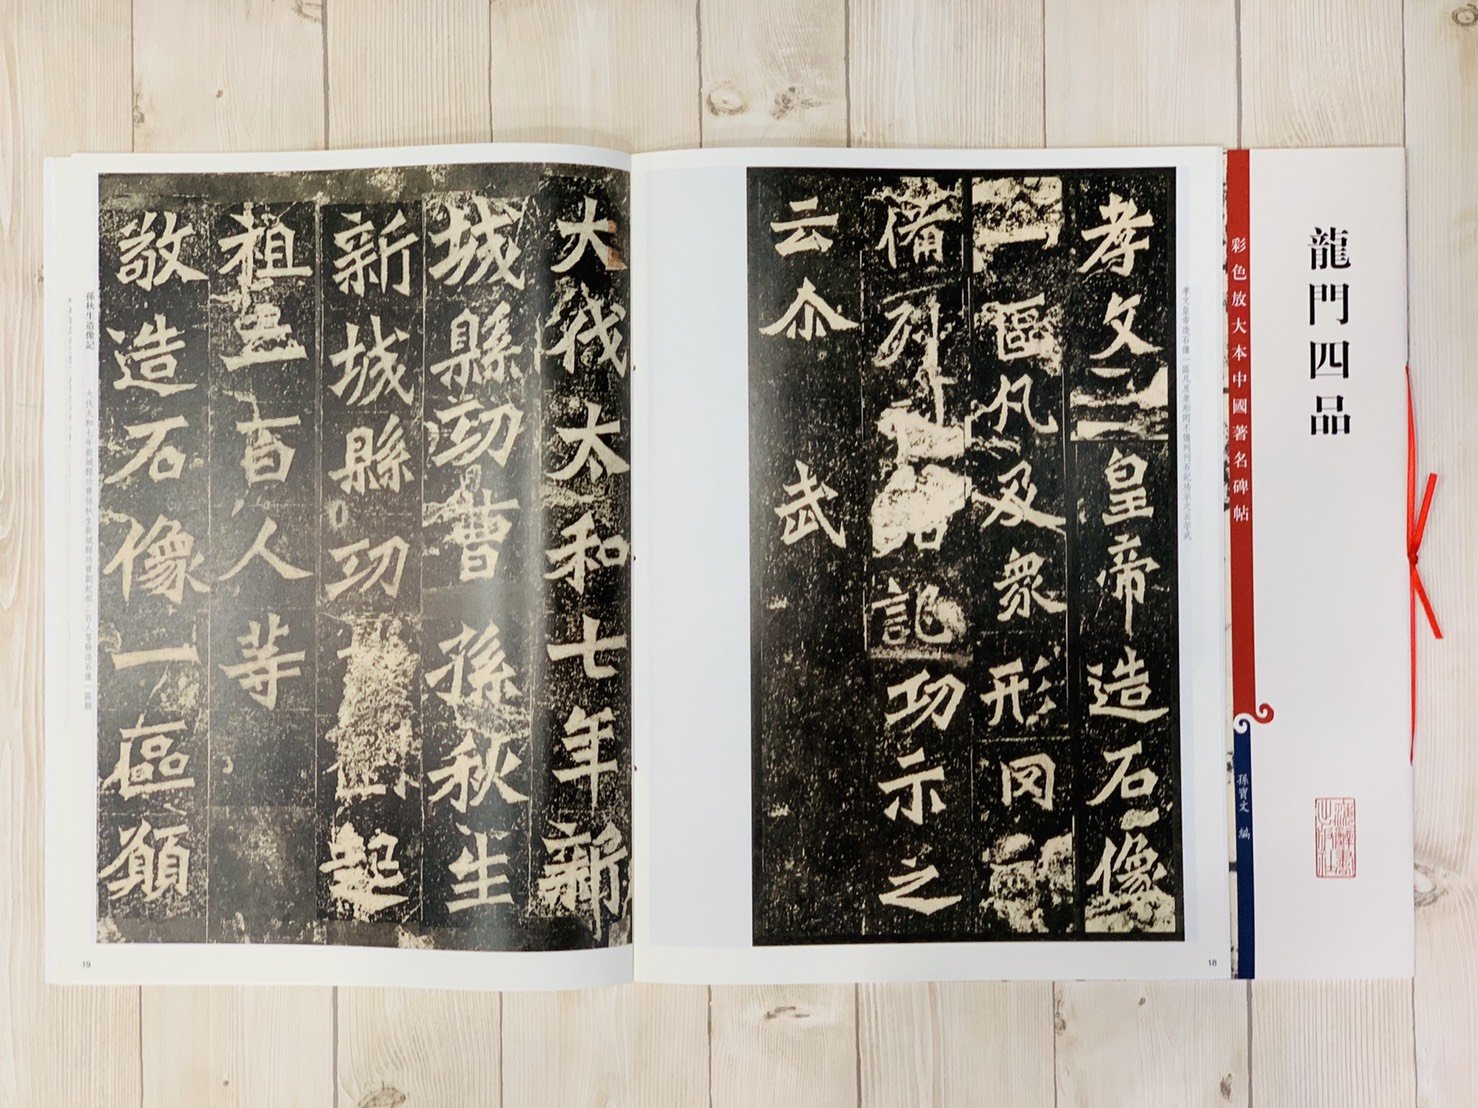 龍門四品
彩色放大本中國著名碑帖
孫寶文 編
孝文皇帝造石像
一區凡及眾形罔
備列
記功示之
云尒武
18
大伐太和七年新
城縣功曹孫秋生
新城縣功曹
起
祖二百人等
敬造石像一區願
孫秋生造像記
大伐太和七年新城縣功曹孫秋生新城縣功曹劉起祖二百人等敬造石像一區願
19